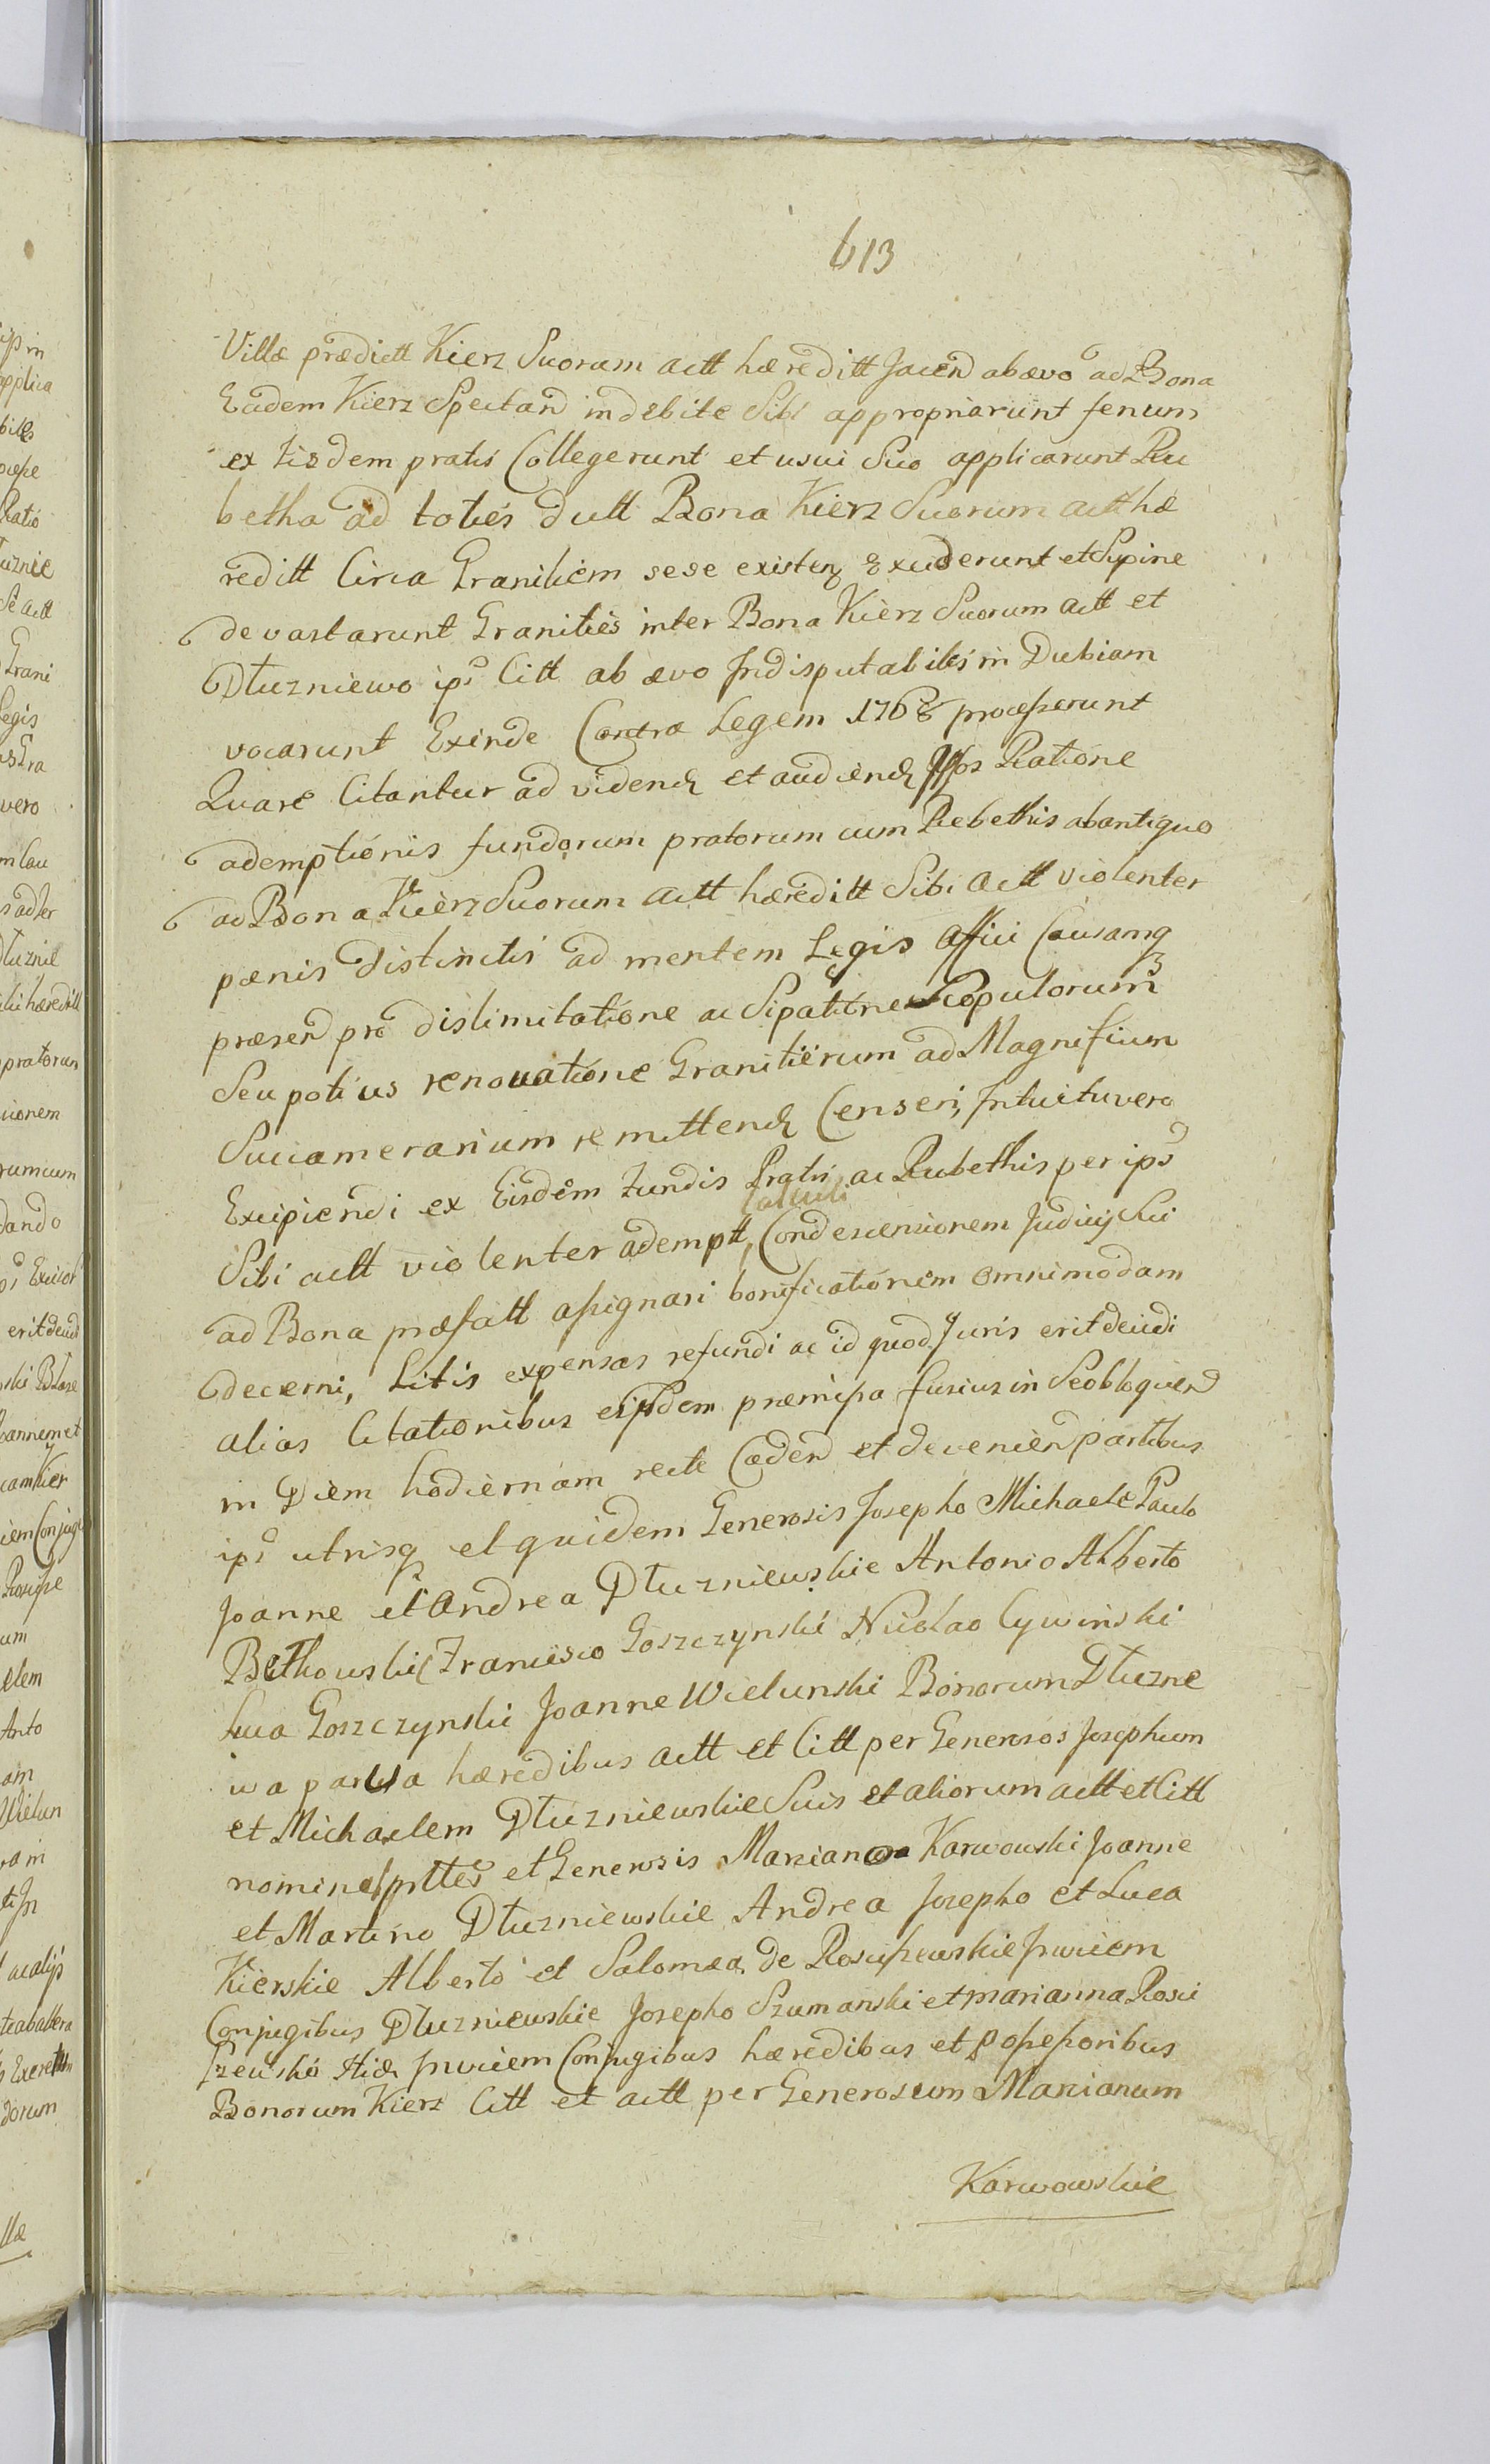 613
Villæ prædictt Kierz Suorum actt hæreditt Jacen ab ævo ad Bona
Eadem Kierz Spectan indebite Sibi appropriarunt fenum
ex Eisdem pratis Collegerunt et usui Suo applicarunt Ru
betha ad toties dictt Bona Kierz Suorum actt hæ
reditt Circa Granitiem sese existen Exciderunt et Supine
devastarunt Granities inter Bona Kierz Suorum actt et
Dłuzniewo ips Citt ab ævo Indisputabiles in Dubiam
vocarunt Exinde Contra Legem 1768 processerunt
Quare Citantur ad viden et audien Ipsos Ratione
ademptionis fundorum pratorum cum Rubethis ab antiquo
ad Bona Kierz Suorum actt hæreditt Sibi actt violenter
pænis distinctis ad mentem Legis Affici Causamq
præsen pro dislimitatione ac Sipatione Scopulorum
Seu potius renovatione Granitierum ad Magnificum
Succamerarium remitten Censeri, Intuitu vero
Excipiendi ex Eisdem fundis Pratis ac Rubethis per ips
Calculi
Sibi actt violenter ademptt, Condescensionem Judicij Sui
ad Bona præfatt assignari bonificationem omnimodam
decerni, Litis expensas refundi ac id quod Juris erit decidi
alias Citationibus eisdem præmissa fusius in Se obloquen
in Diem hodiernam recte Caden et devenien partibus
ips utrisq et quidem Generosis Josepho Michaele Paulo
Joanne et Andrea Dłuzniewskie Antonio Alberto
Betkowskie Francisco Goszczynski Nicolao Cywinski
Luca Goszczynski Joanne Wielunski Bonorum Dłuzne
wa parva hæredibus actt et Citt per Generosos Josephum
et Michaelem Dłuzniewskie Suis et aliorum actt et Citt
et Generosis Mariano Karwowski Joanne
et Martino Dłuzniewskie Andrea Josepho et Luca
Kierskie Alberto et Salomea de Rosciszewskie Invicem
Conjugibus Dłuzniewskie Josepho Szumanski et Marianna Rosci
szewskie Invicem Conjugibus hæredibus et possessoribus
Bonorum Kierz Citt et actt per Generosum Marianum
Karwowskie